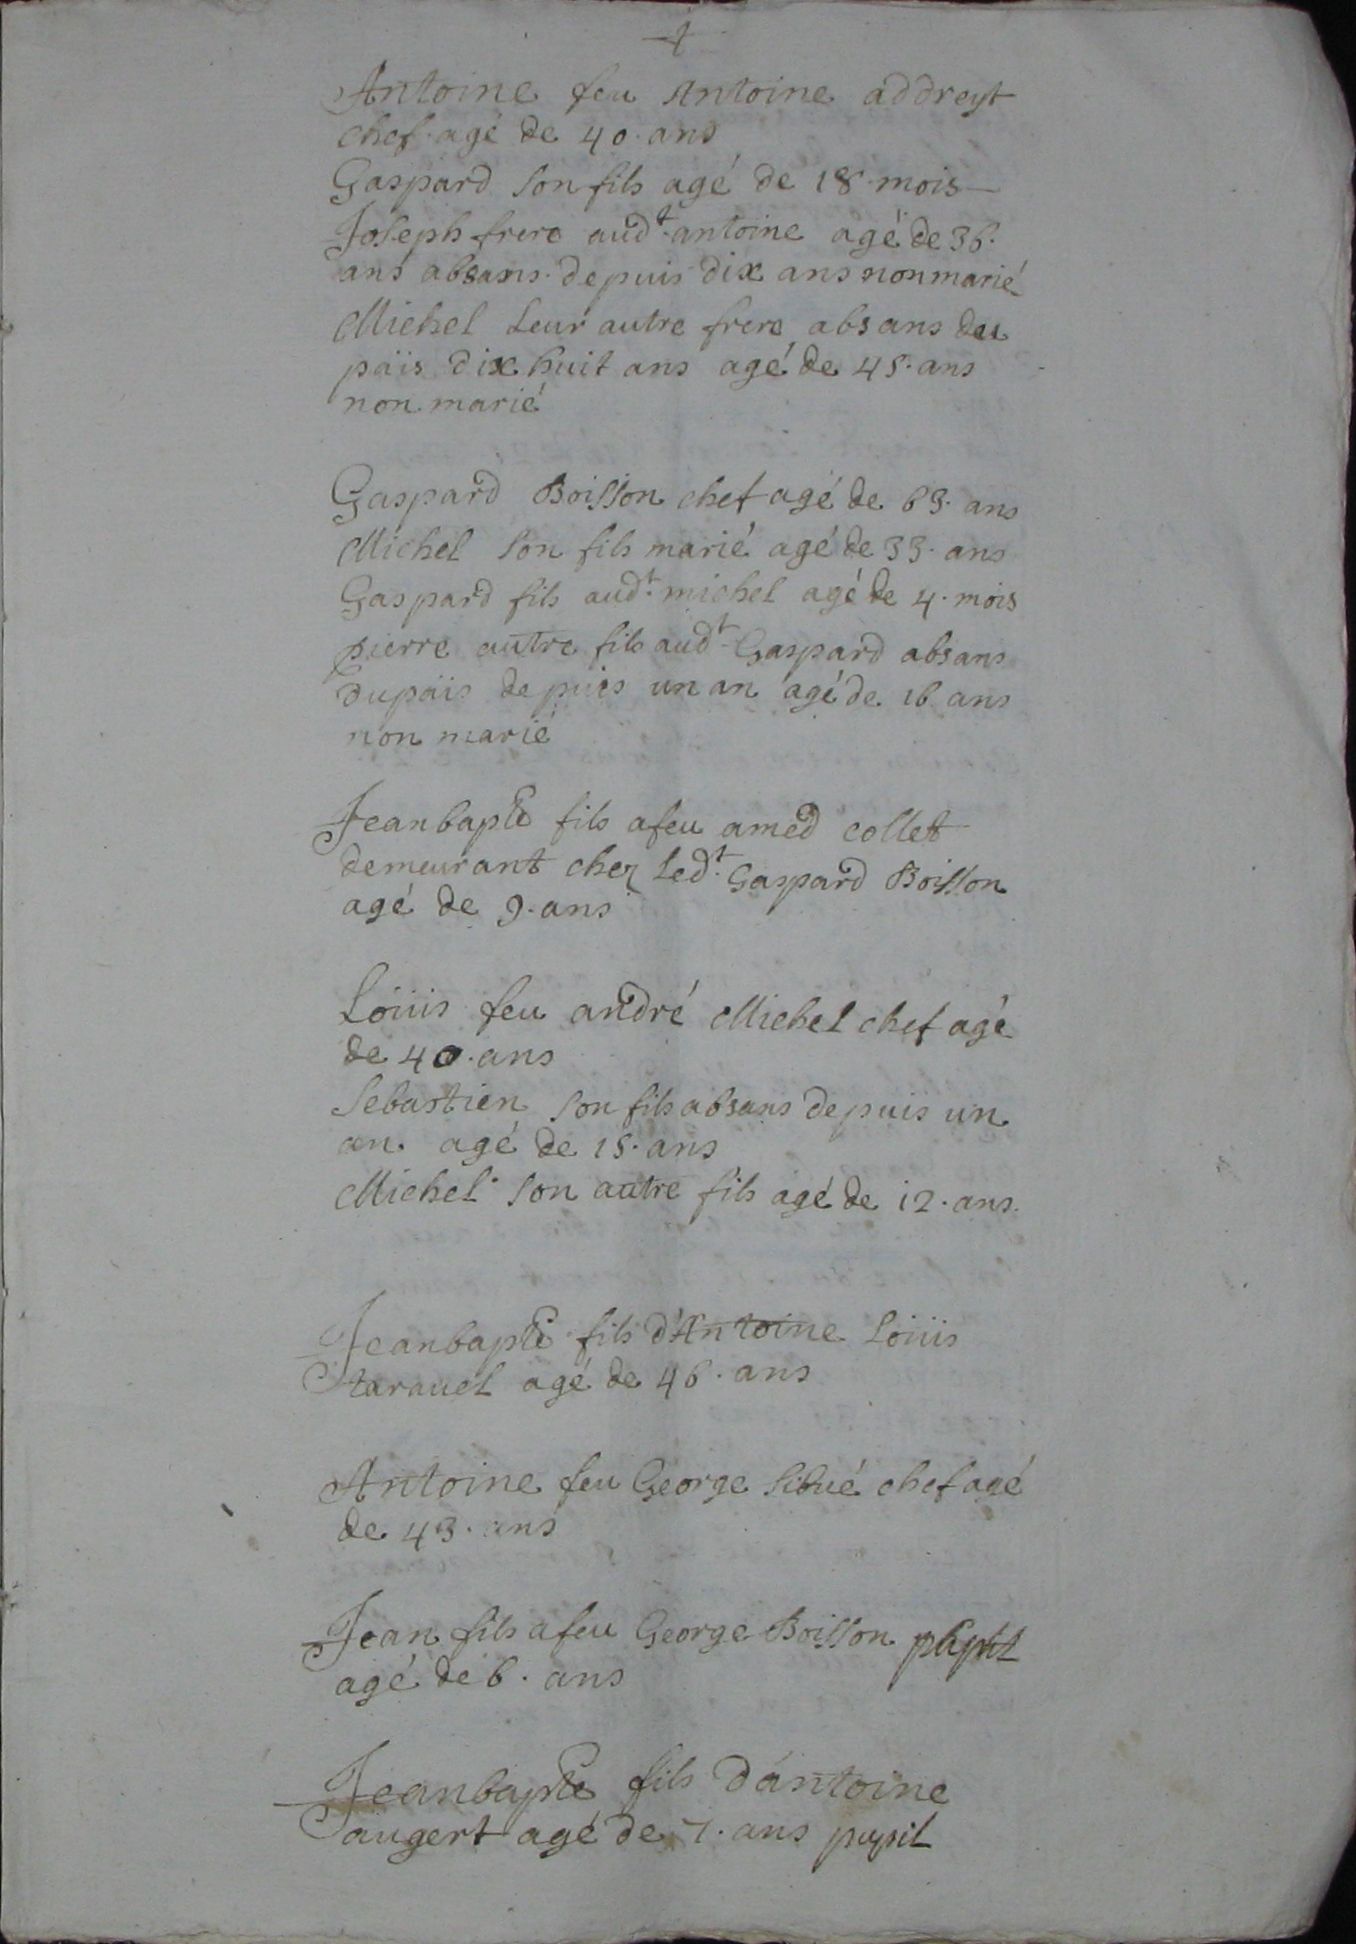 Antoine feu Antoine addreyt
chef agé de 40. ans
Gaspard son fils agé de 18. mois
Joseph frere audt. antoine agé de 36.
ans absans depuis dix ans non marié
Michel Leur autre frere absans deu
païs dix huit ans agé de 45. ans
non marié
Gaspard Boisson chef agé de 63. ans
Michel son fils marié agé de 33. ans
Gaspard fils audt. michel agé de 4. mois
pierre autre fils audt. Gaspard absans
dupaïs depuis un an agé de 16 ans
non marié
Jeanbapte fils afeu amed collet
demeurant chez Ledt. Gaspard Boisson
agé de 9. ans
Loüis feu andré Michel chef agé
de 40. ans
Sebastien son fils absans depuis un
an agé de 15. ans
Michel son autre fils agé de 12. ans.
Jeanbapte fils d'Antoine Loüis
taravel agé de 46. ans
Antoine feu George Sibué chef agé
de 43. ans
Jean fils afeu George Boisson
agé de 6. ans
Jeanbapte fils d'antoine
augert agé de 7. ans pupil